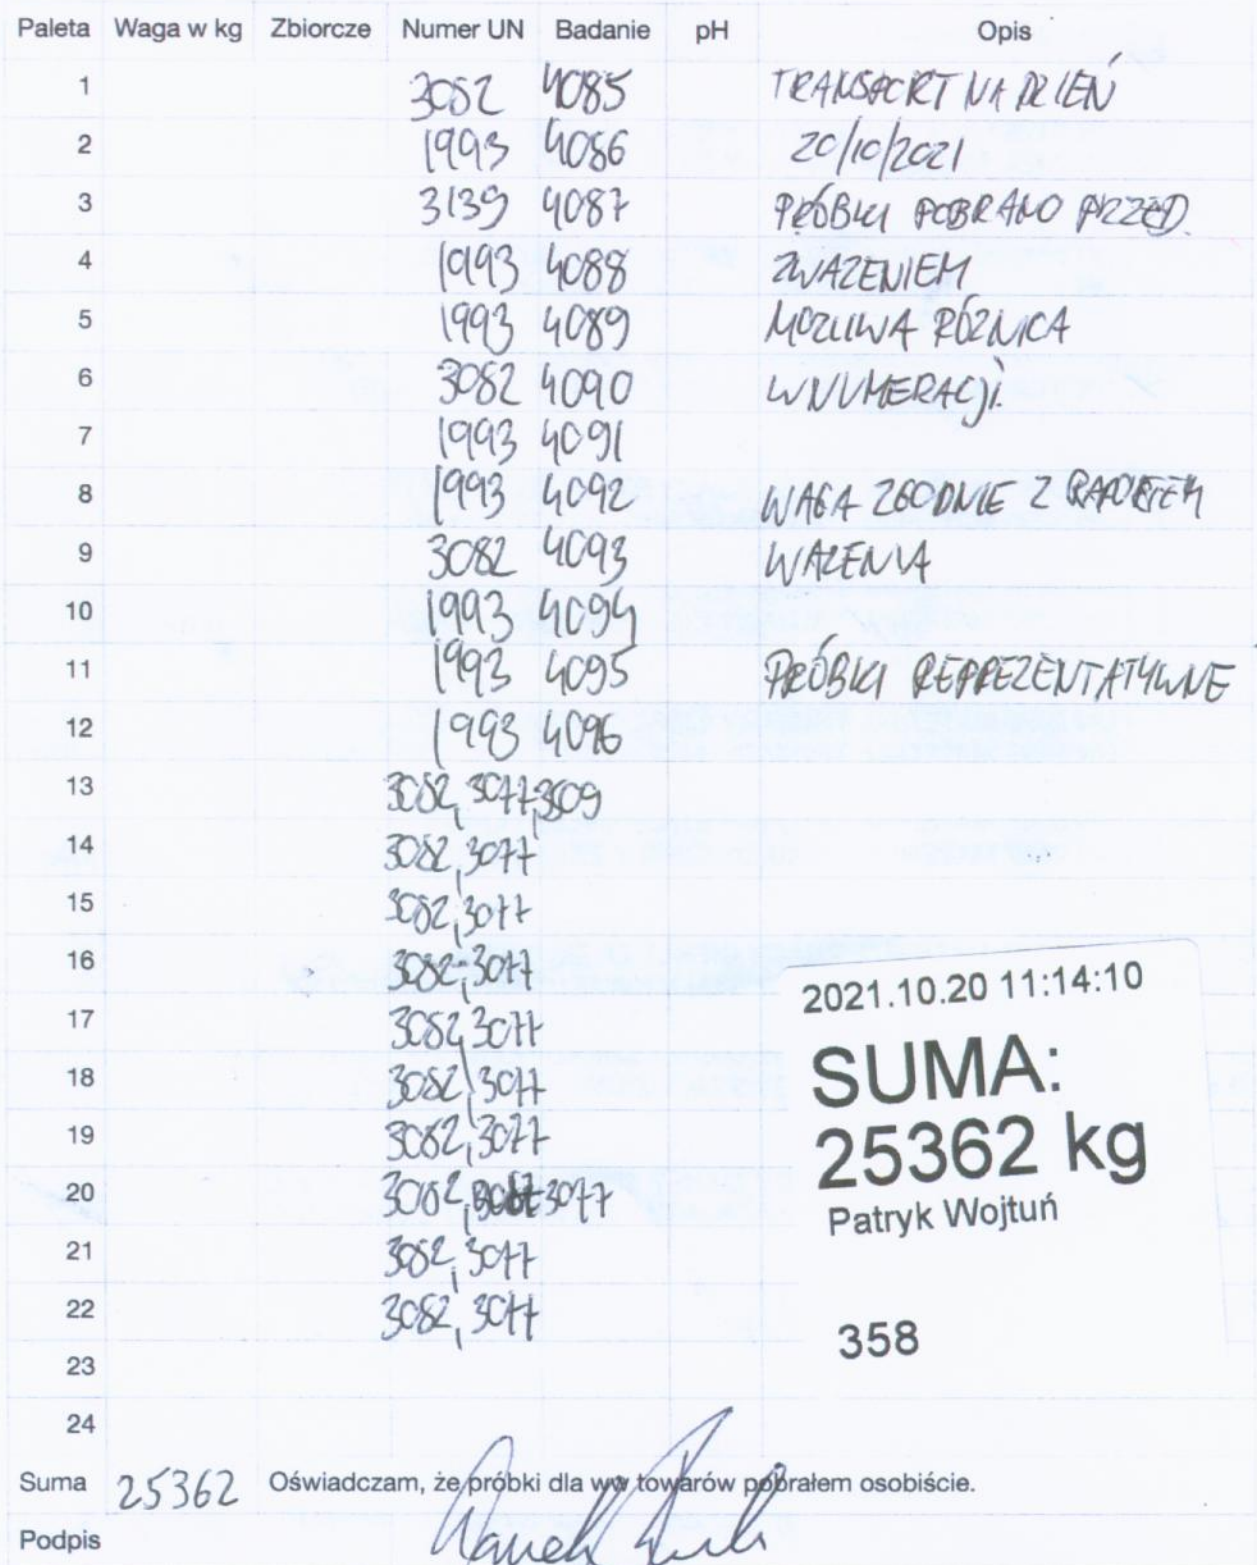 Paleta Waga w kg Zbiorcze Numer UN Badanie pH Opis
1 3082 4085 TRANSPORT NA DZIEŃ
2 1993 4086 20/10/2021
3 3139 4087 PRÓBKI POBRANO PRZED
4 1993 4088 ZWAZENIEM
5 1993 4089 MOZLIWA RÓZNICA
6 3082 4090 W NUMERACJI.
7 1993 4091
8 1993 4092 WAGA ZGODNIE Z RAPORTEM
9 3082 4093 WAZENIA
10 1993 4094
11 1993 4095 PRÓBKI REPREZENTATYWNE
12 1993 4096
13 3082, 3077, 3509
14 3082, 3077
15 3082, 3077
16 3082, 3077
17 3082, 3077
18 3082, 3077
19 3082, 3077
20 3082, 3077
21 3082, 3077
22 3082, 3077
23
24
2021.10.20 11:14:10
SUMA:
25362 kg
Patryk Wojtuń
358
Suma 25362 Oświadczam, że próbki dla ww towarów pobrałem osobiście.
Podpis